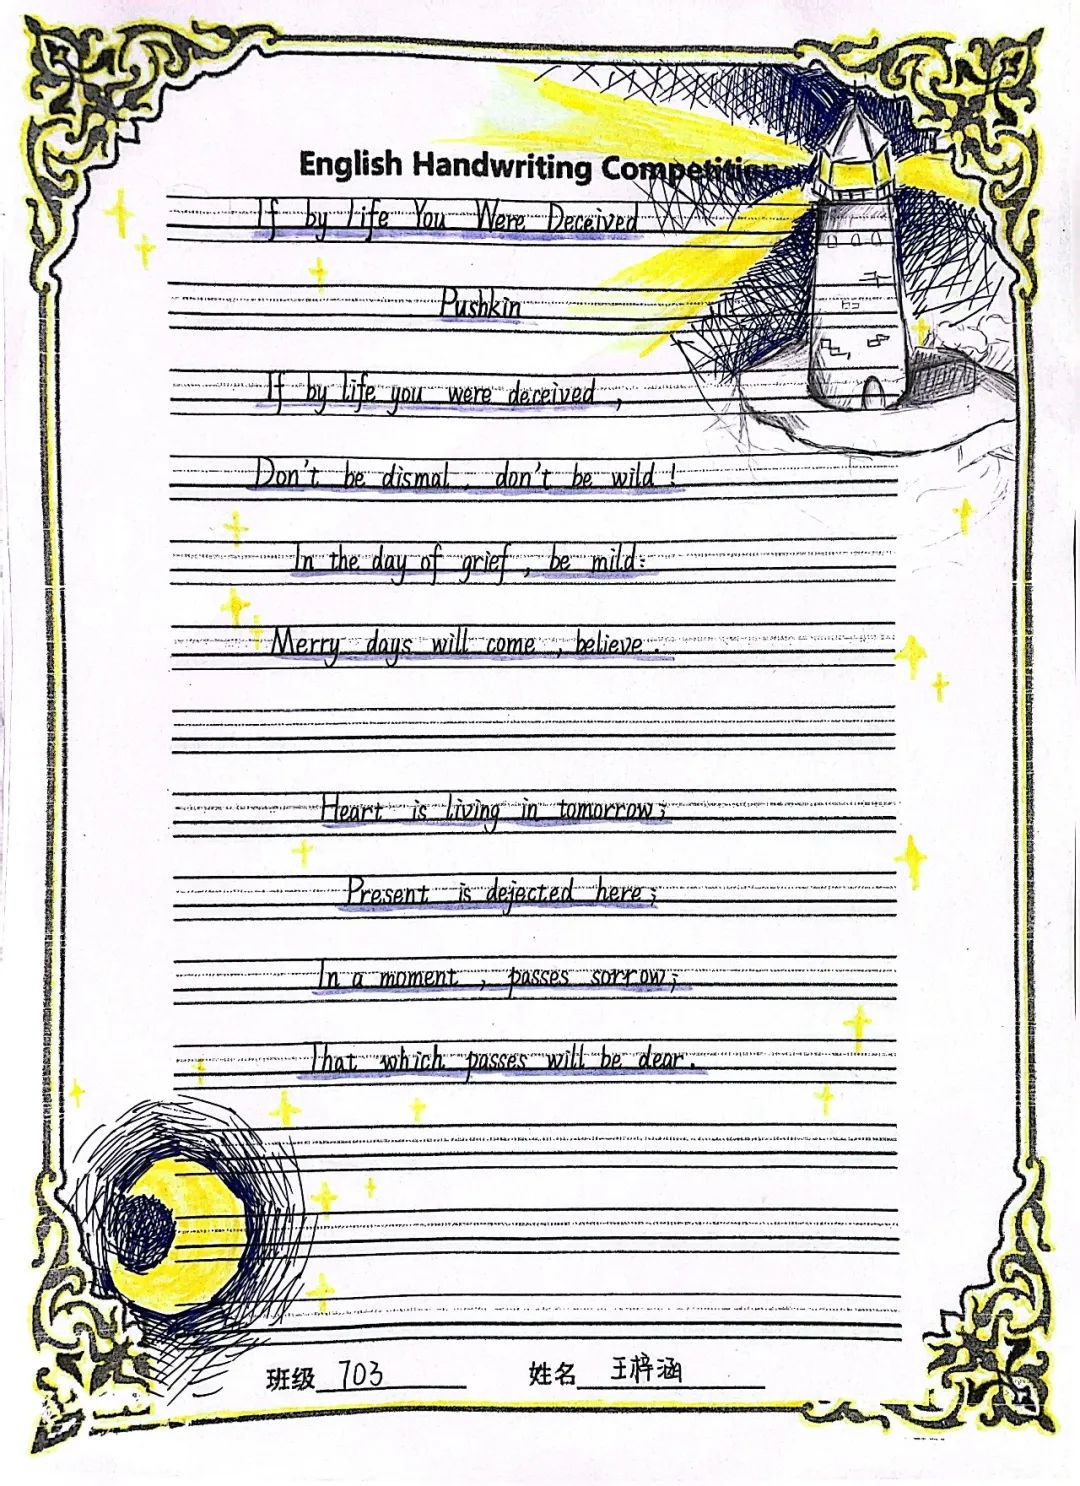 English Handwriting Competition
If by life You Were Deceived
Pushkin
If by life you were deceived,
Don't be dismal, don't be wild!
In the day of grief, be mild:
Merry days will come, believe.
Heart is living in tomorrow;
Present is dejected here;
In a moment, passes sorrow;
That which passes will be dear.
班级 703 姓名 王梓涵